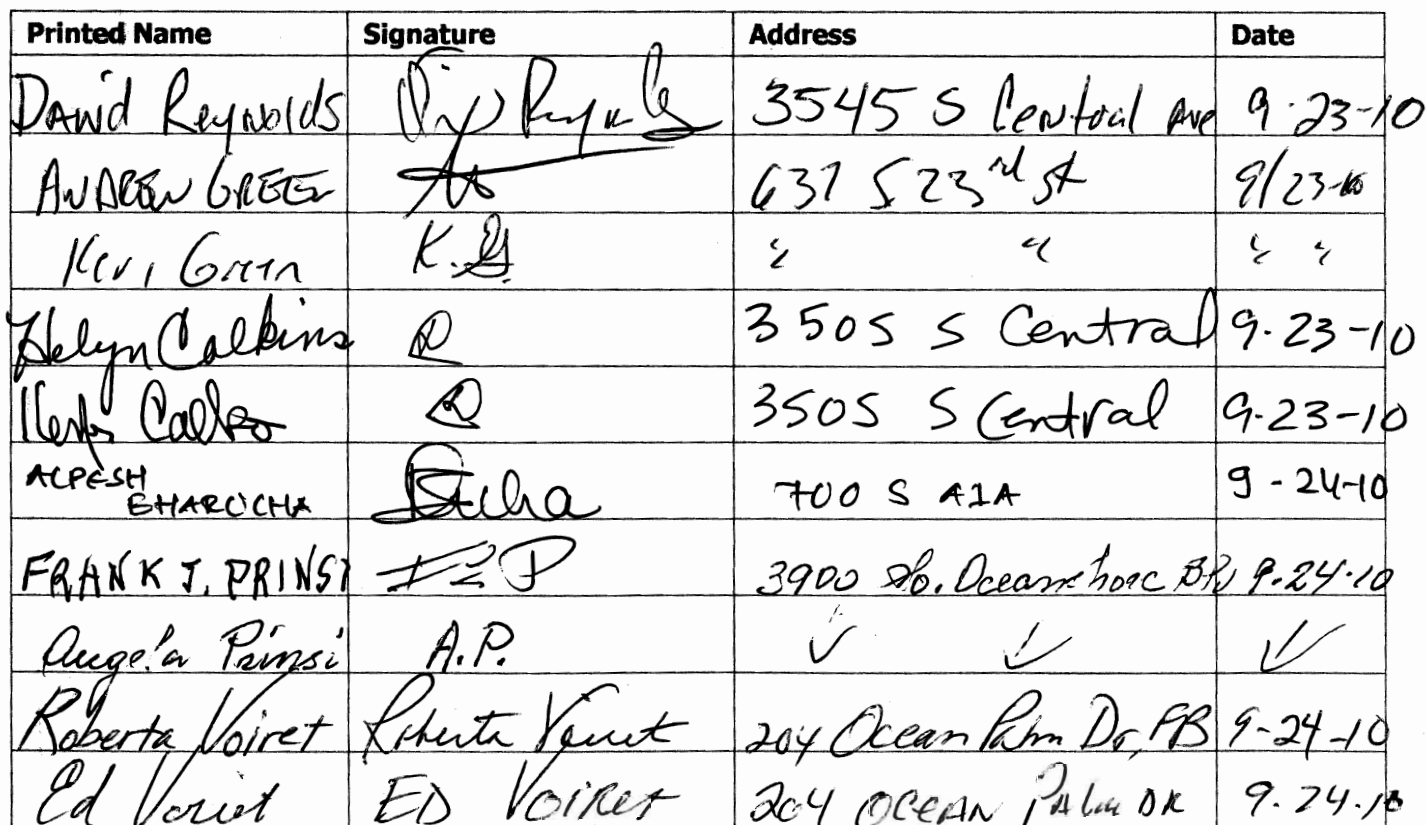 Printed Name Signature Address Date
David Reynolds 3545 S Central Ave 9-23-10
ANDREW GREEN 637 S 23rd St 9/23-10
Keri Green K.G. " " " "
Helyn Calkins 3505 S Central 9-23-10
3505 S Central 9-23-10
ALPESH
BHAROCHA 700 S A1A 9-24-10
FRANK J. PRINSI 3900 So. Oceanshore Blvd 9.24.10
Angela Prinsi A.P. ✓ ✓ ✓
Roberta Voiret Roberta Voiret 204 Ocean Palm Dr, FB 9-24-10
Ed Voiret ED VOIRET 204 OCEAN PALM DR 9.24.10